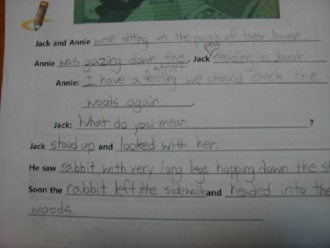 Jack and Annie were sitting on the porch of their house
Annie was gazing down the street. Jack was reading a book
Annie: I have a feeling we should check the
woods again.
Jack: What do you mean?
Jack stood up and looked with her.
He saw rabbit with very long legs hopping down the
Soon the rabbit left the sidewalk and headed into the
woods.